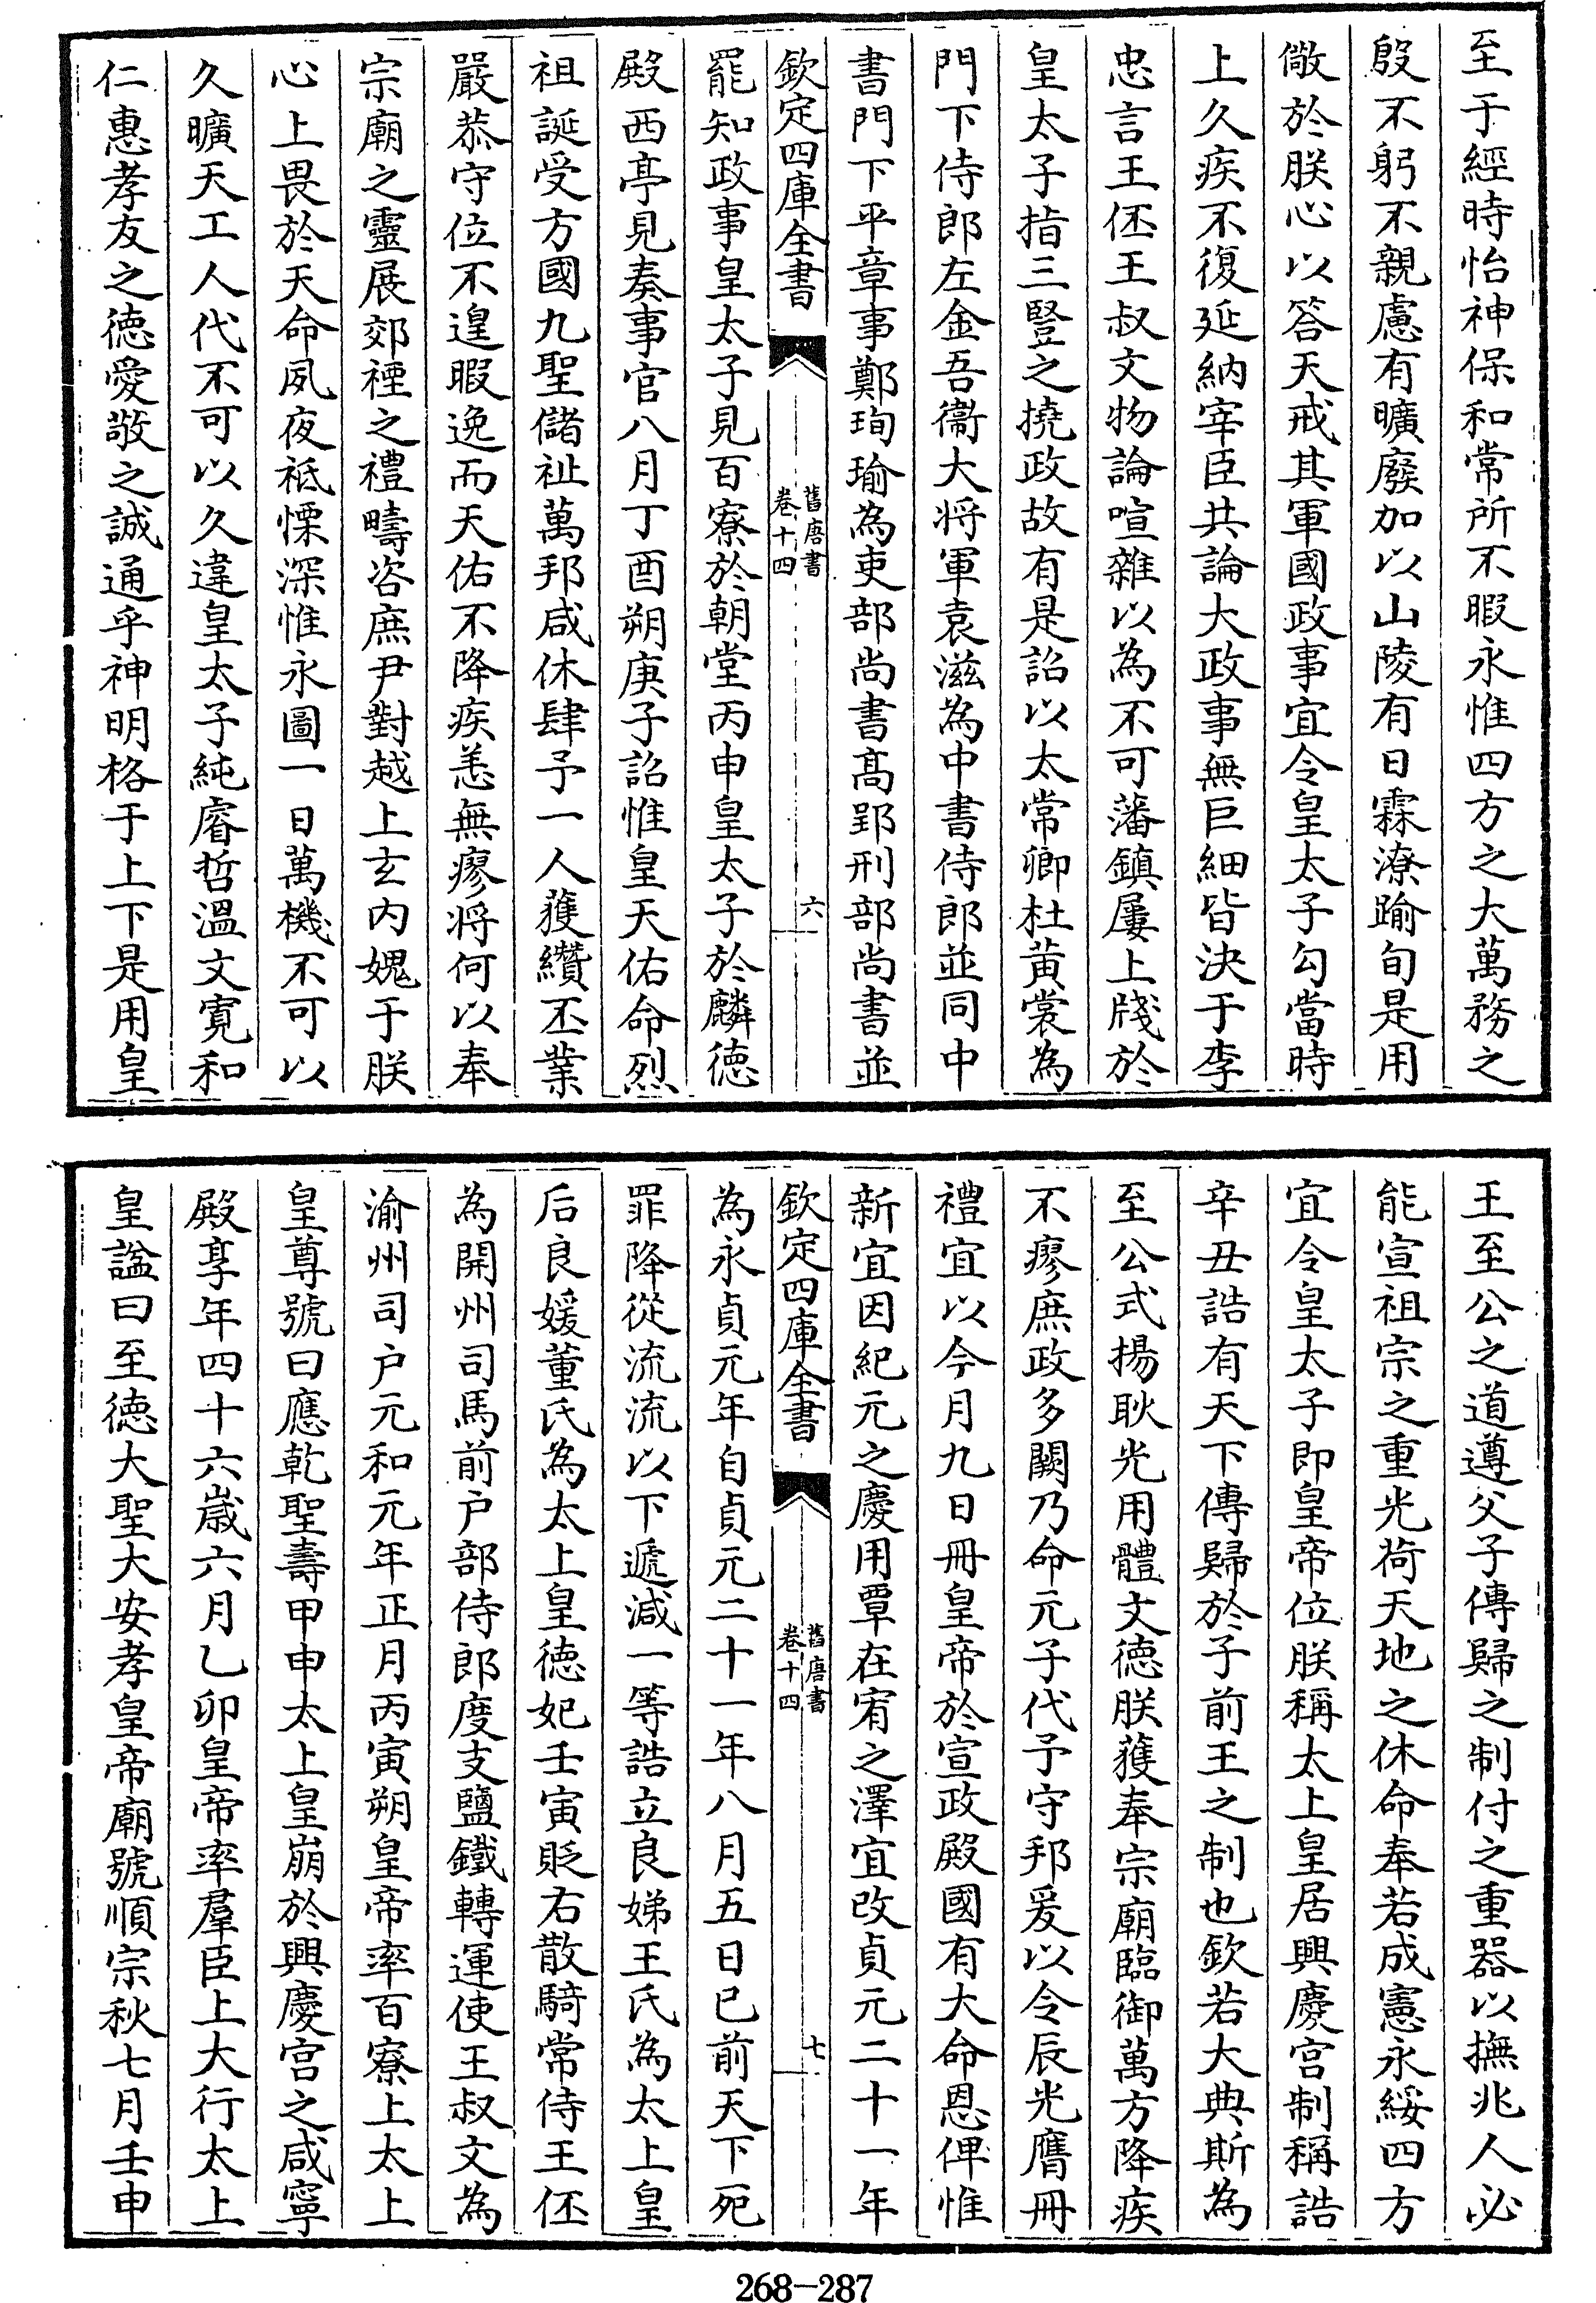 至于經時怡神保和常所不暇永惟四方之大萬務之
殷不躬不親慮有曠廢加以山陵有日霖潦踰旬是用
儆於朕心以答天戒其軍國政事宜令皇太子勾當時
上久疾不復延納宰臣共論大政事無巨細皆決于李
忠言王伾王叔文物論喧雜以為不可藩鎮屢上牋於
皇太子指三豎之撓政故有是詔以太常卿杜黃裳為
門下侍郎左金吾衞大將軍袁滋為中書侍郎並同中
書門下平章事鄭珣瑜為吏部尚書高郢刑部尚書並
欽定四庫全書
舊唐書
卷十四
六
罷知政事皇太子見百寮於朝堂丙申皇太子於麟徳
殿西亭見奏事官八月丁酉朔庚子詔惟皇天佑命烈
祖誕受方國九聖儲祉萬邦咸休肆予一人獲纘丕業
嚴恭守位不遑暇逸而天佑不降疾恙無瘳将何以奉
宗廟之靈展郊禋之禮疇咨庶尹對越上玄内媿于朕
心上畏於天命夙夜祗慄深惟永圖一日萬機不可以
久曠天工人代不可以久違皇太子純睿哲溫文寛和
仁惠孝友之徳愛敬之誠通乎神明格于上下是用皇
王至公之道遵父子傳歸之制付之重器以撫兆人必
能宣祖宗之重光荷天地之休命奉若成憲永綏四方
宜令皇太子即皇帝位朕稱太上皇居興慶宮制稱誥
辛丑誥有天下傳歸於子前王之制也欽若大典斯為
至公式揚耿光用體文德朕獲奉宗廟臨御萬方降疾
不瘳庶政多闕乃命元子代予守邦爰以令辰光膺冊
禮宜以今月九日冊皇帝於宣政殿國有大命恩俾惟
新宜因紀元之慶用覃在宥之澤宜改貞元二十一年
欽定四庫全書
舊唐書
卷十四
七
為永貞元年自貞元二十一年八月五日已前天下死
罪降從流流以下遞減一等誥立良娣王氏為太上皇
后良媛董氏為太上皇徳妃壬寅貶右散騎常侍王伾
為開州司馬前户部侍郎度支鹽鐵轉運使王叔文為
渝州司户元和元年正月丙寅朔皇帝率百寮上太上
皇尊號曰應乾聖壽甲申太上皇崩於興慶宮之咸寧
殿享年四十六歳六月乙卯皇帝率羣臣上大行太上
皇諡曰至徳大聖大安孝皇帝廟號順宗秋七月壬申
268-287